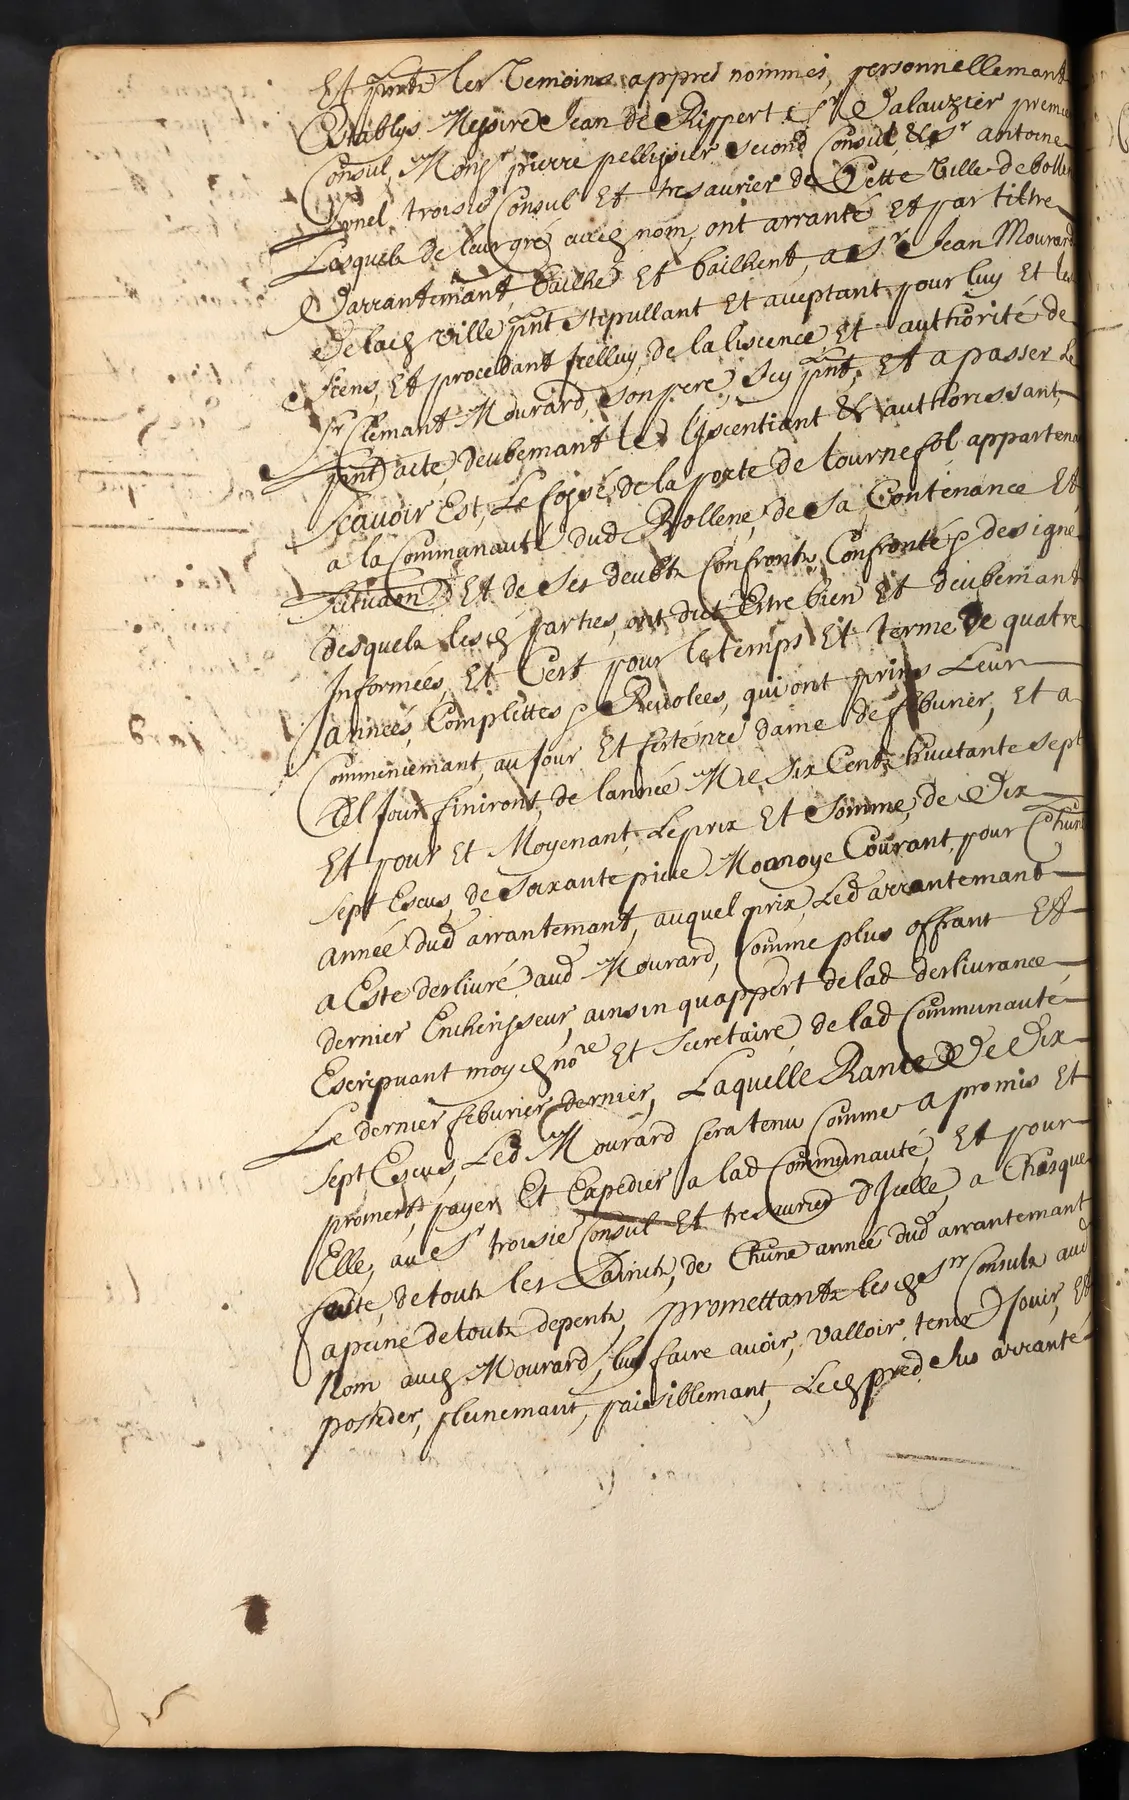 Et pnts les temoins appres nommés, personnellemant
Establys Messire Jean de Rippert Sr Dalauzier premier
Consul, Monsr pierre pellissier second Consul, & Sr antoine
Lionel troisie Consul Et tresaurier de Cette Ville de bolle
Lesquels de leur gré aud nom, ont arranté Et par tiltre
Darrantemant, bailhé Et bailhent, a Sr Jean Mourard
De lad Ville pnt stipullant Et aceptant pour luy Et les
siens, Et procedant Jcelluy, de la liscence Et authorité de
Sr Clemant Mourard, son pere, Jcy pnt, Et a passer Le
pnt acte, deubemant le lyscentiant Et authorissant,
Scavoir Est, Le fossé de la porte de tournefol appartena
a la Communauté dud Bollene, de sa Contenance Et
situaon Et de ses deubts Confronts, Confronté p designé
desquels lesd parties, ont dict Estre bien Et deubemant
Informées, Et Cert pour le temps Et terme de quatre
années, Complettes p Revolees, qui ont prins Leur
Commencemant, au jour Et feste nre dame de febvrier, Et a
tel Jour finiront, de lannée Mil six Cents huictante sept
Et pour Et Moyenant, Le prix Et somme, de Dix
sept Escus, de soixante piece Monnoye Courant, pour Chune
année dud arrantemant, auquel prix, Led arrantemant
a Esté deslivré aud Mourard, Comme plus offrant Et
dernier Encherisseur, ainsin quappert de lad deslivrance
Escripvant moy d nore Et secretaire de lad Communauté
Le dernier febvrier dernier, Laquelle Rante De Dix
sept Escus, Led Mourard sera tenu Comme a promis Et
promets, payer Et Expedier a lad Communauté, Et pour
Elle, au Sr troisie Consul Et tresaurier d'Jcelle, a Chasque
feste, de touts les Saincts, de Chune année dud arrantemant
a peine de touts depents, promettants lesd Srs Consuls aud
Nom aud Mourard, luy faire avoir, valloir, tenir, Jouir, Et
posseder, pleinemant, paisiblemant, Led pred sus arranté